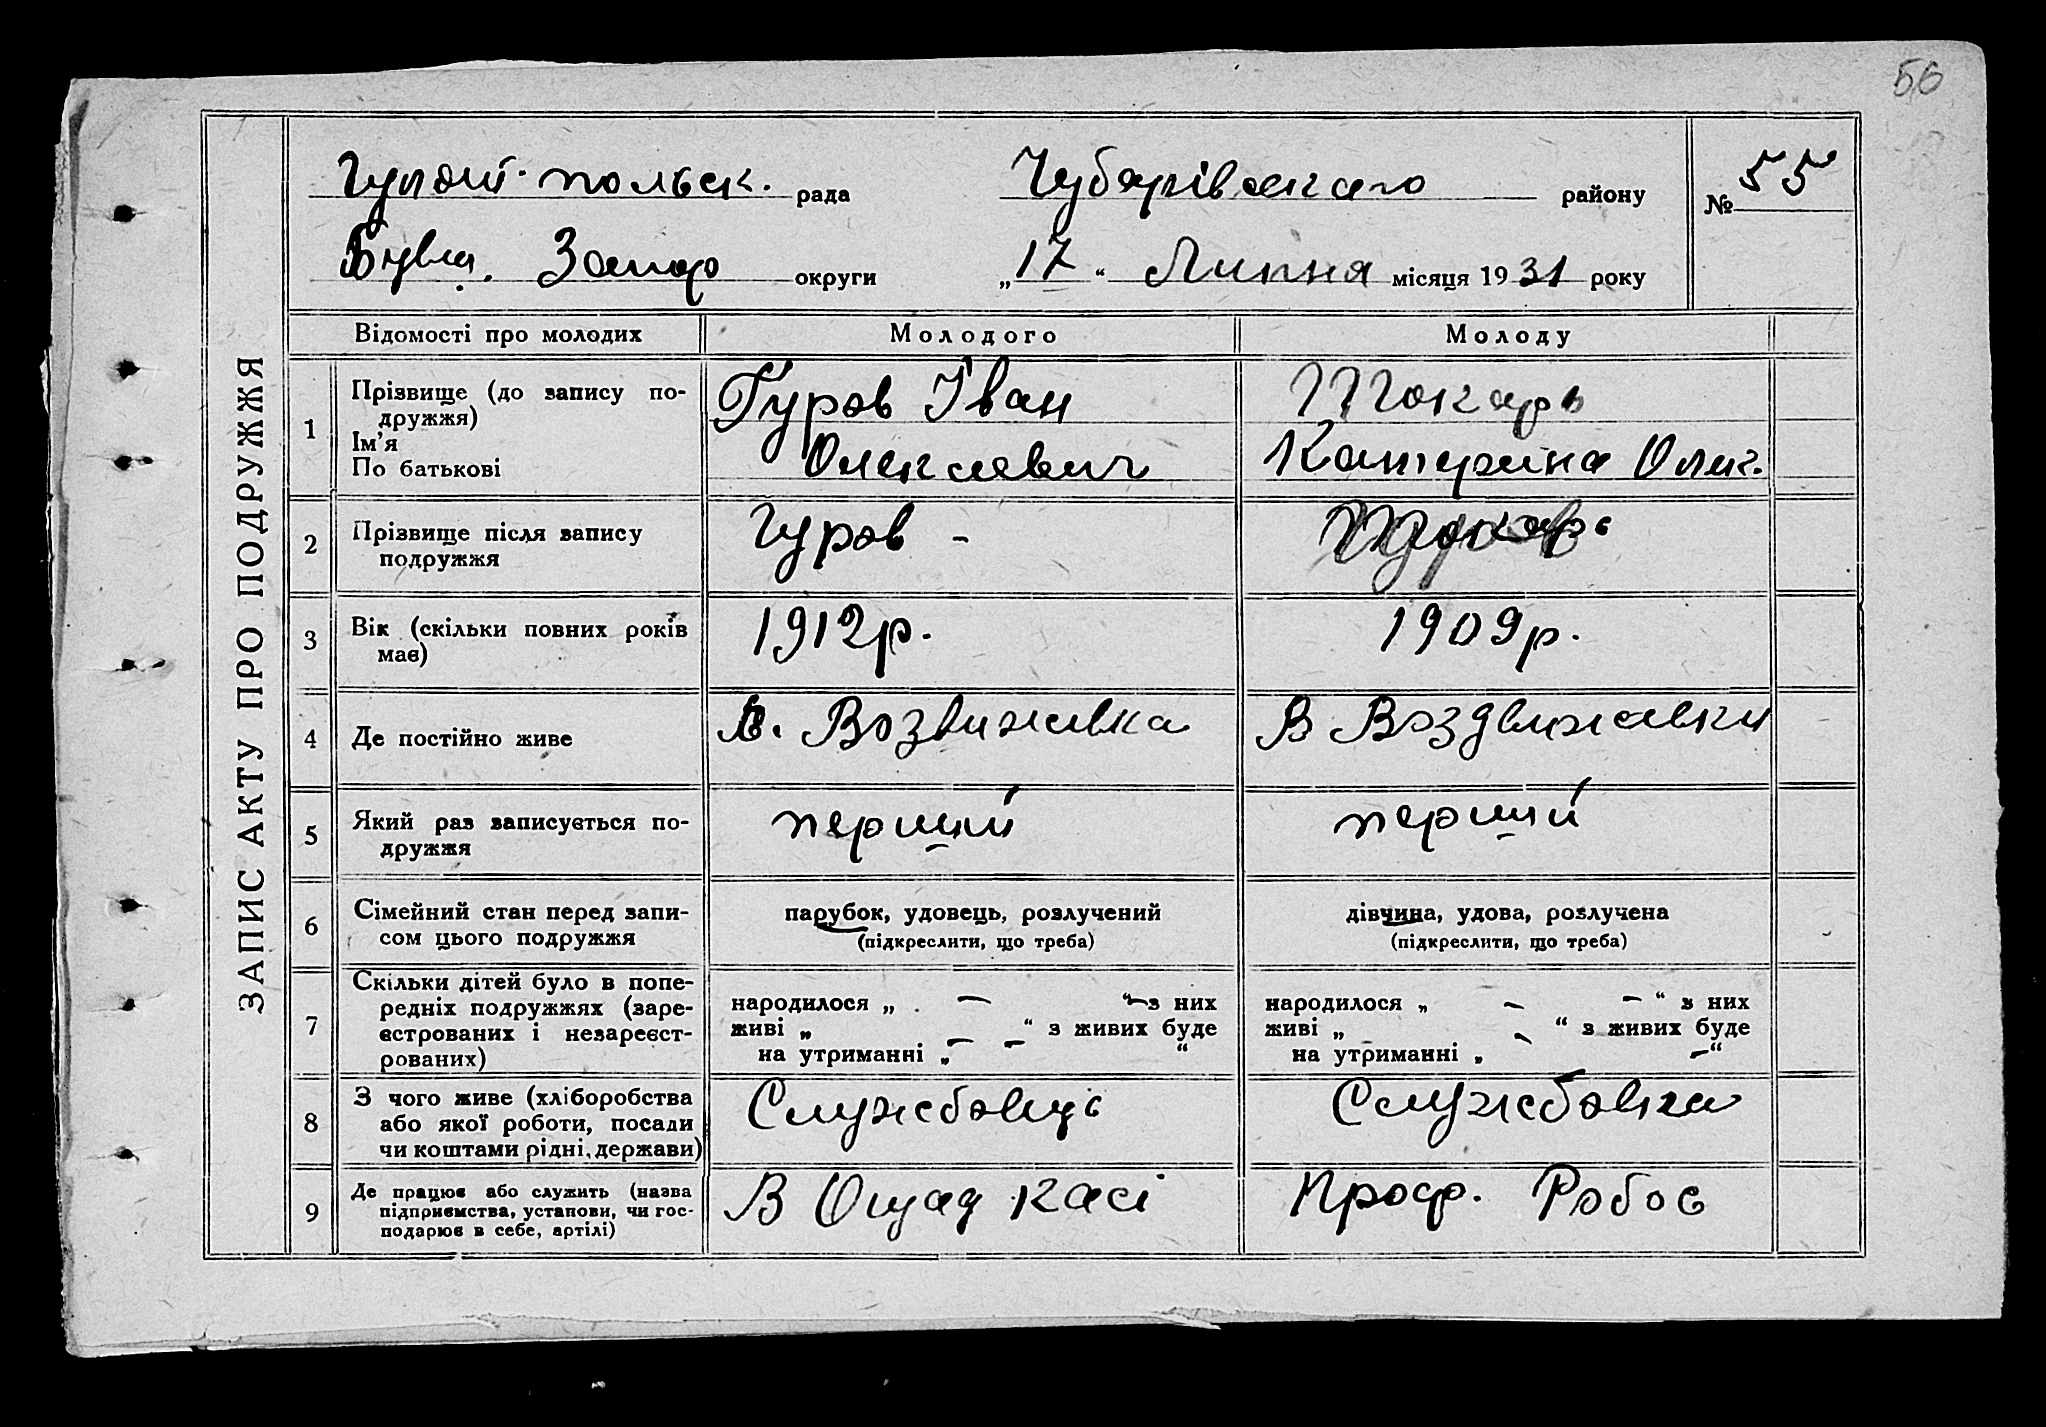 56
Гуляй-польск. рада Чубарівського району № 55
Запор округи „17“ Липня місяця 1931 року
ЗАПИС АКТУ ПРО ПОДРУЖЖЯ
Відомості про молодих Молодого Молоду
1 Прізвище (до запису по-
дружжя)
Ім’я
По батькові
Гуров Іван
Олексієвич
Токарь
Катерина Олек.
2 Прізвище після запису
подружжя
Гуров -
Токарь
3 Вік (скільки повних років
має)
1912р.
1909р.
4 Де постійно живе
в. Возвижевка
В Воздвижевки
5 Який раз записується по-
дружжя
перший
перший
6 Сімейний стан перед запи-
сом цього подружжя
парубок, удовець, розлучений
(підкреслити, що треба)
дівчина, удова, розлучена
(підкреслити, що треба)
7 Скільки дітей було в попе-
редніх подружжях (заре-
єстрованих і незареєст-
рованих)
народилося „ — “ з них
живі „ — “ з живих буде
на утриманні „ — “
народилося „ — “ з них
живі „ — “ з живих буде
на утриманні „ — “
8 З чого живе (хліборобства
або якої роботи, посади
чи коштами рідні, держави)
Службовиць
Службовка
9 Де працює або служить (назва
підприємства, установи, чи гос-
подарює в себе, артілі)
В Ощад касі
Проф. Робос